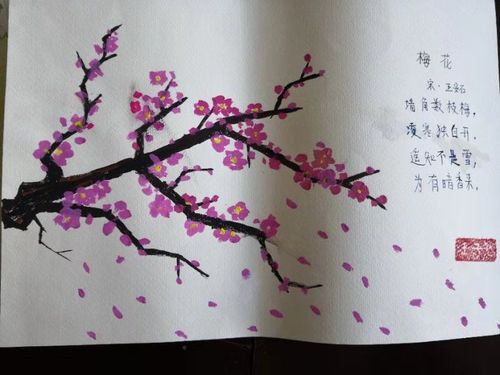 梅花
宋·王安石
墙角数枝梅，
凌寒独自开，
遥知不是雪，
为有暗香来。